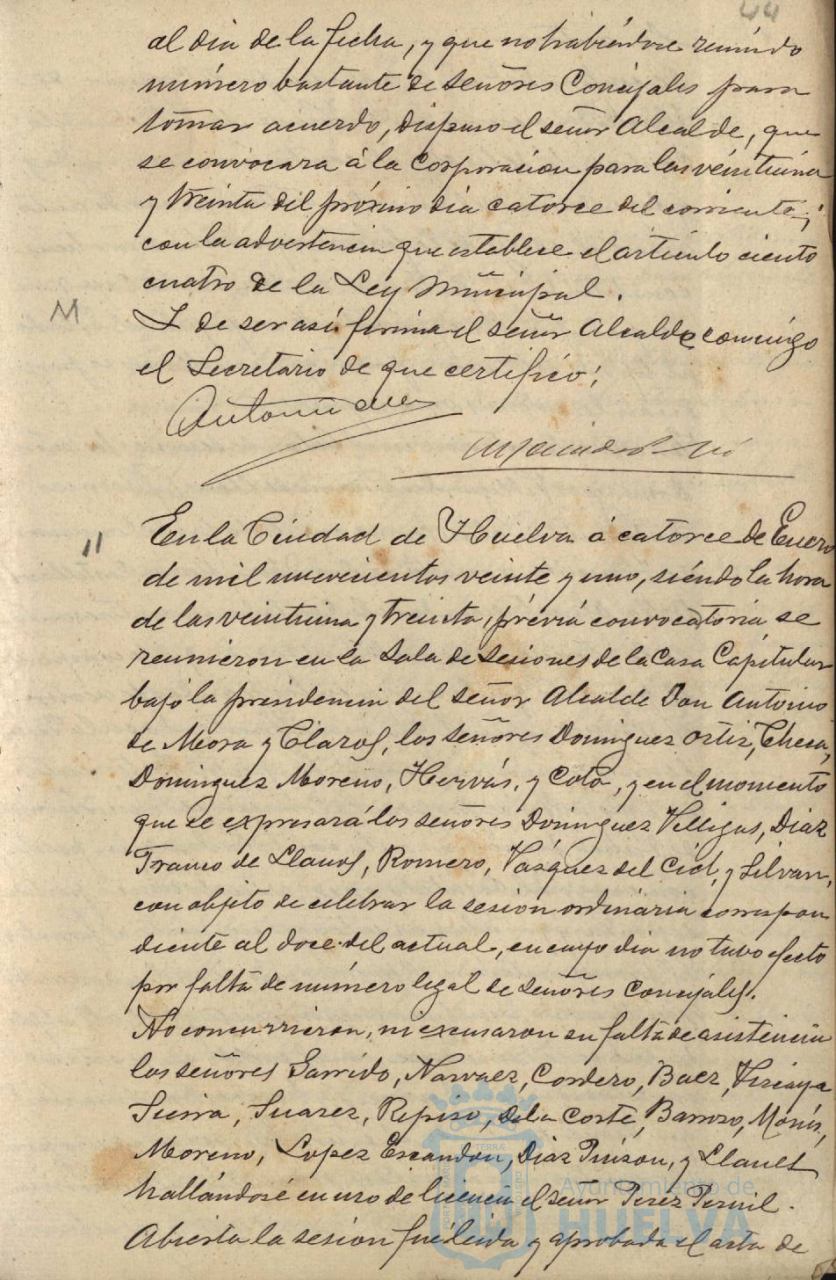 44
al dia de la fecha, y que no habiéndose reunido
número bastante de señores Concejales para
tomar acuerdo, dispuso el señor Alcalde, que
se convocara á la Corporacion para las veintiuna
y treinta del próximo dia catorce del corriente;
con la advertencia que establece el artículo ciento
cuatro de la Ley Municipal.
M
Y de ser así firma el señor Alcalde conmigo
el Secretario de que certifico;
Antonio de
En la Ciudad de Huelva á catorce de Enero
de mil novecientos veinte y uno, siendo la hora
de las veintiuna y treinta, prévia convocatoria se
reunieron en la Sala de Sesiones de la Casa Capitular
bajo la presidencia del señor Alcalde Don Antonio
de Mora y Claros, los señores Dominguez Ortiz, Checa,
Dominguez Moreno, Hervás, y Coto, y en el momento
que se expresará los señores Dominguez Villegas, Diaz
Franco de Llanos, Romero, Vázquez del Cid, y Silvan,
con objeto de celebrar la sesion ordinaria correspon
diente al doce del actual, en cuyo dia no tuvo efecto
por falta de número legal de señores Concejales.
No concurrieron, ni excusaron su falta de asistencia
los señores Garrido, Narvaez, Cordero, Baez, Vizcaya
Sierra, Suarez, Repiso, de la Corte, Barroso, Monís,
Moreno, Lopez Escandon, Diaz Pinzon, y Llanes
hallándose en uso de licencia el señor Perez Pernil.
Abierta la sesion fué leida y aprobada el acta de
Ayuntamiento de
HUELVA